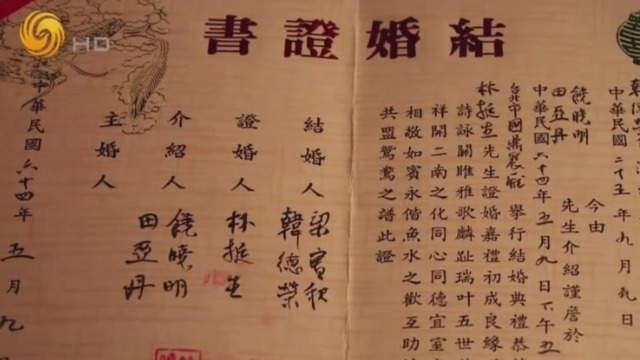 HD
結婚證書
中華民國二十五年九月九日
今由
饒曉明
田亞丹
先生介紹謹詹於
中華民國六十四年五月九日下午五
台北中國 舉行結婚典禮恭
林挺生先生證婚嘉禮初成良緣
詩詠關雎雅歌麟趾瑞叶五世
祥開二南之化同心同德宜室
相敬如賓永偕魚水之歡互助
共盟鴛鴦之譜此證
結婚人 梁實秋
韓德榮
證婚人 林挺生
介紹人 饒曉明
田亞丹
主婚人
中華民國六十四年五月九